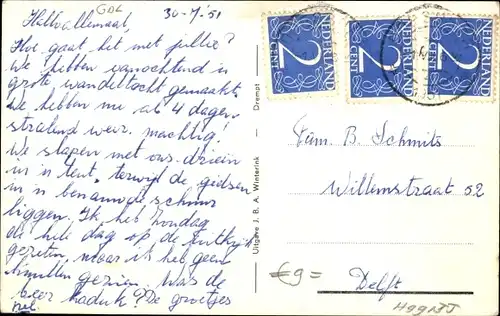 GDL
30-7-'51
Hallo allemaal,
Hoe gaat het met jullie?
We hebben vanochtend 'n
grote wandeltocht gemaakt.
We hebben nu al 4 dagen
stralend weer. machtig!
We slapen met ons drieën
in 'n tent, terwijl de gidsen
in 'n benauwde schuur
liggen. Ik heb Zondag
de hele dag op de
gezeten, maar ik heb geen
gezien. Was de
beer kaduk? De groetjes
Uitgave J. B. A. Winterink - Drempt
NEDERLAND
2
CENT
NEDERLAND
2
CENT
NEDERLAND
2
Fam. B. Schmits
Willemstraat 52
Delft